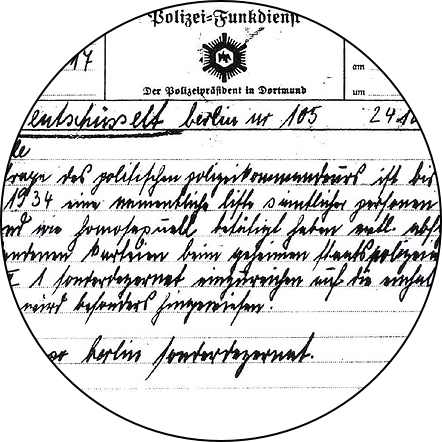 Polizei=Funkdienst
17
am
Der Polizeipräsident in Dortmund
um
entschüsselt berlin nr 105 24.10
rage des politischen polizeikommandeurs ist bis
1934 eine namentliche liste sämtlicher personen
wie homosexuell betätigt haben
karteien beim geheimen staatspolizei
1 sonderdezernat einzureichen auf die einhal
wird besonders hingewiesen.
berlin sonderdezernat.